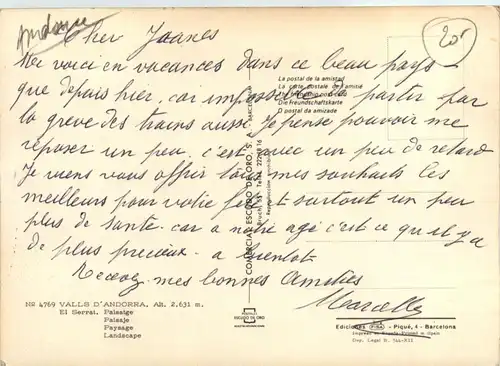 Andorre
20F
Cher Joanes
Me voici en vacances dans ce beau pays
que depuis hier, car impossible de partir par
la grève des trains aussi je pense pouvoir me
reposer un peu. c'est avec un peu de retard
Je viens vous offrir tous mes souhaits les
meilleurs pour votre fête et surtout un peu
plus de santé. car a notre age c'est ce qu'il y a
de plus precieux. a bientot.
Recevez mes bonnes Amitiés
Marcelle
La postal de la amistad
La carte postale de l'amitié
Die Freundschaftskarte
D postal da amizade
COMERCIAL ESCUDO DE ORO, S.
Nº 4769 VALLS D'ANDORRA. Alt. 2.631 m.
El Serrat. Paisatge
Paisaje
Paysage
Landscape
ESCUDO DE ORO
Ediciones FISA - Piqué, 4 - Barcelona
Dep. Legal B.